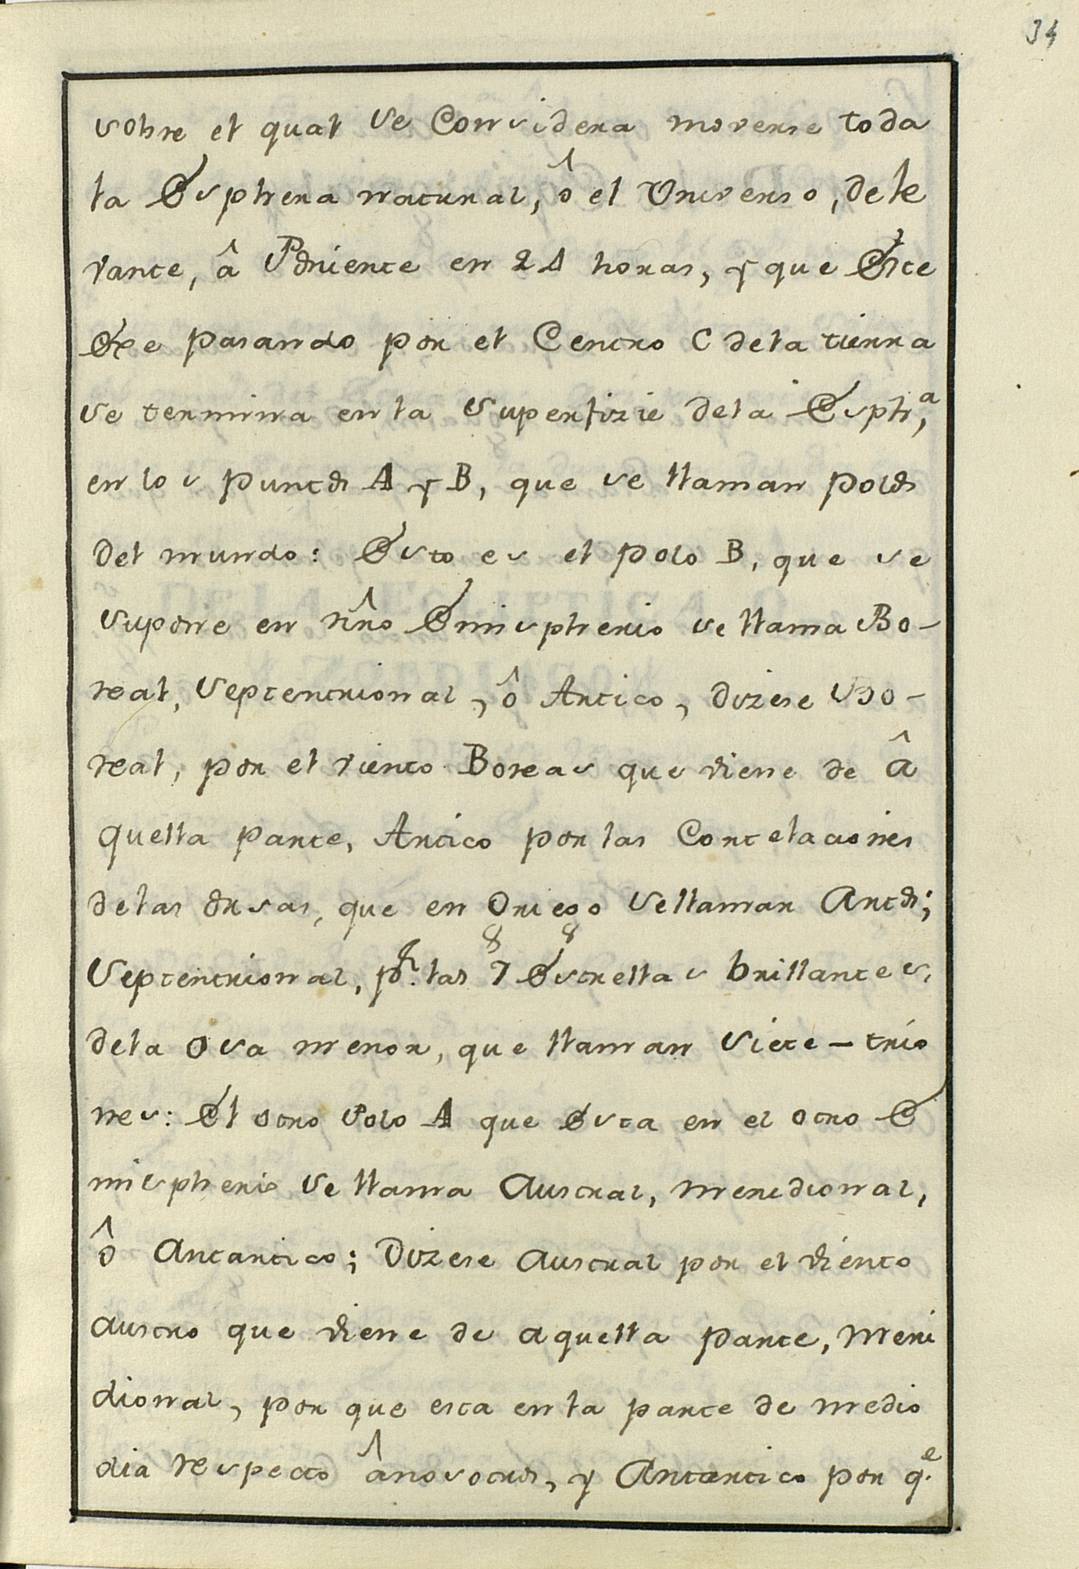 34
sobre el qual se Considera moverse toda
la Esphera natural, ô el Universo, de le
vante, â Poniente en 24 horas, y que Este
Exe pasando por el Centro C dela tierra
se termina en la superfizie dela Esph.ª,
en los puntos A y B, que se llaman polos
del mundo: Esto es el polo B, que se
supone en nrô Emispherio se llama Bo-
real, Septentrional, ô Artico, dizese Bo-
real, por el viento Boreas que viene de â
quella parte, Artico por las Contelaciones
delas Orsas, que en Griego se llaman Artos;
Septentrional, pr. las 7 Estrellas brillantes,
dela Osa menor, que llaman siete-trio
nes: El otro Polo A que Esta en el otro E
mispherio se llama Austral, meridional,
ô Antartico; Dizese austral por el viento
austro que viene de aquella parte, Meri
dional, por que esta en la parte de medio
dia respecto ânosotros, y Antartico por q.e